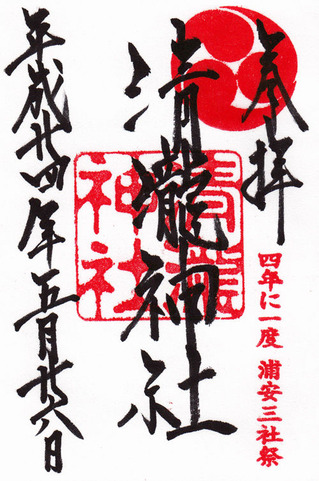 奉拝
四年に一度 浦安三社祭
清瀧神社
平成廿四年五月廿八日